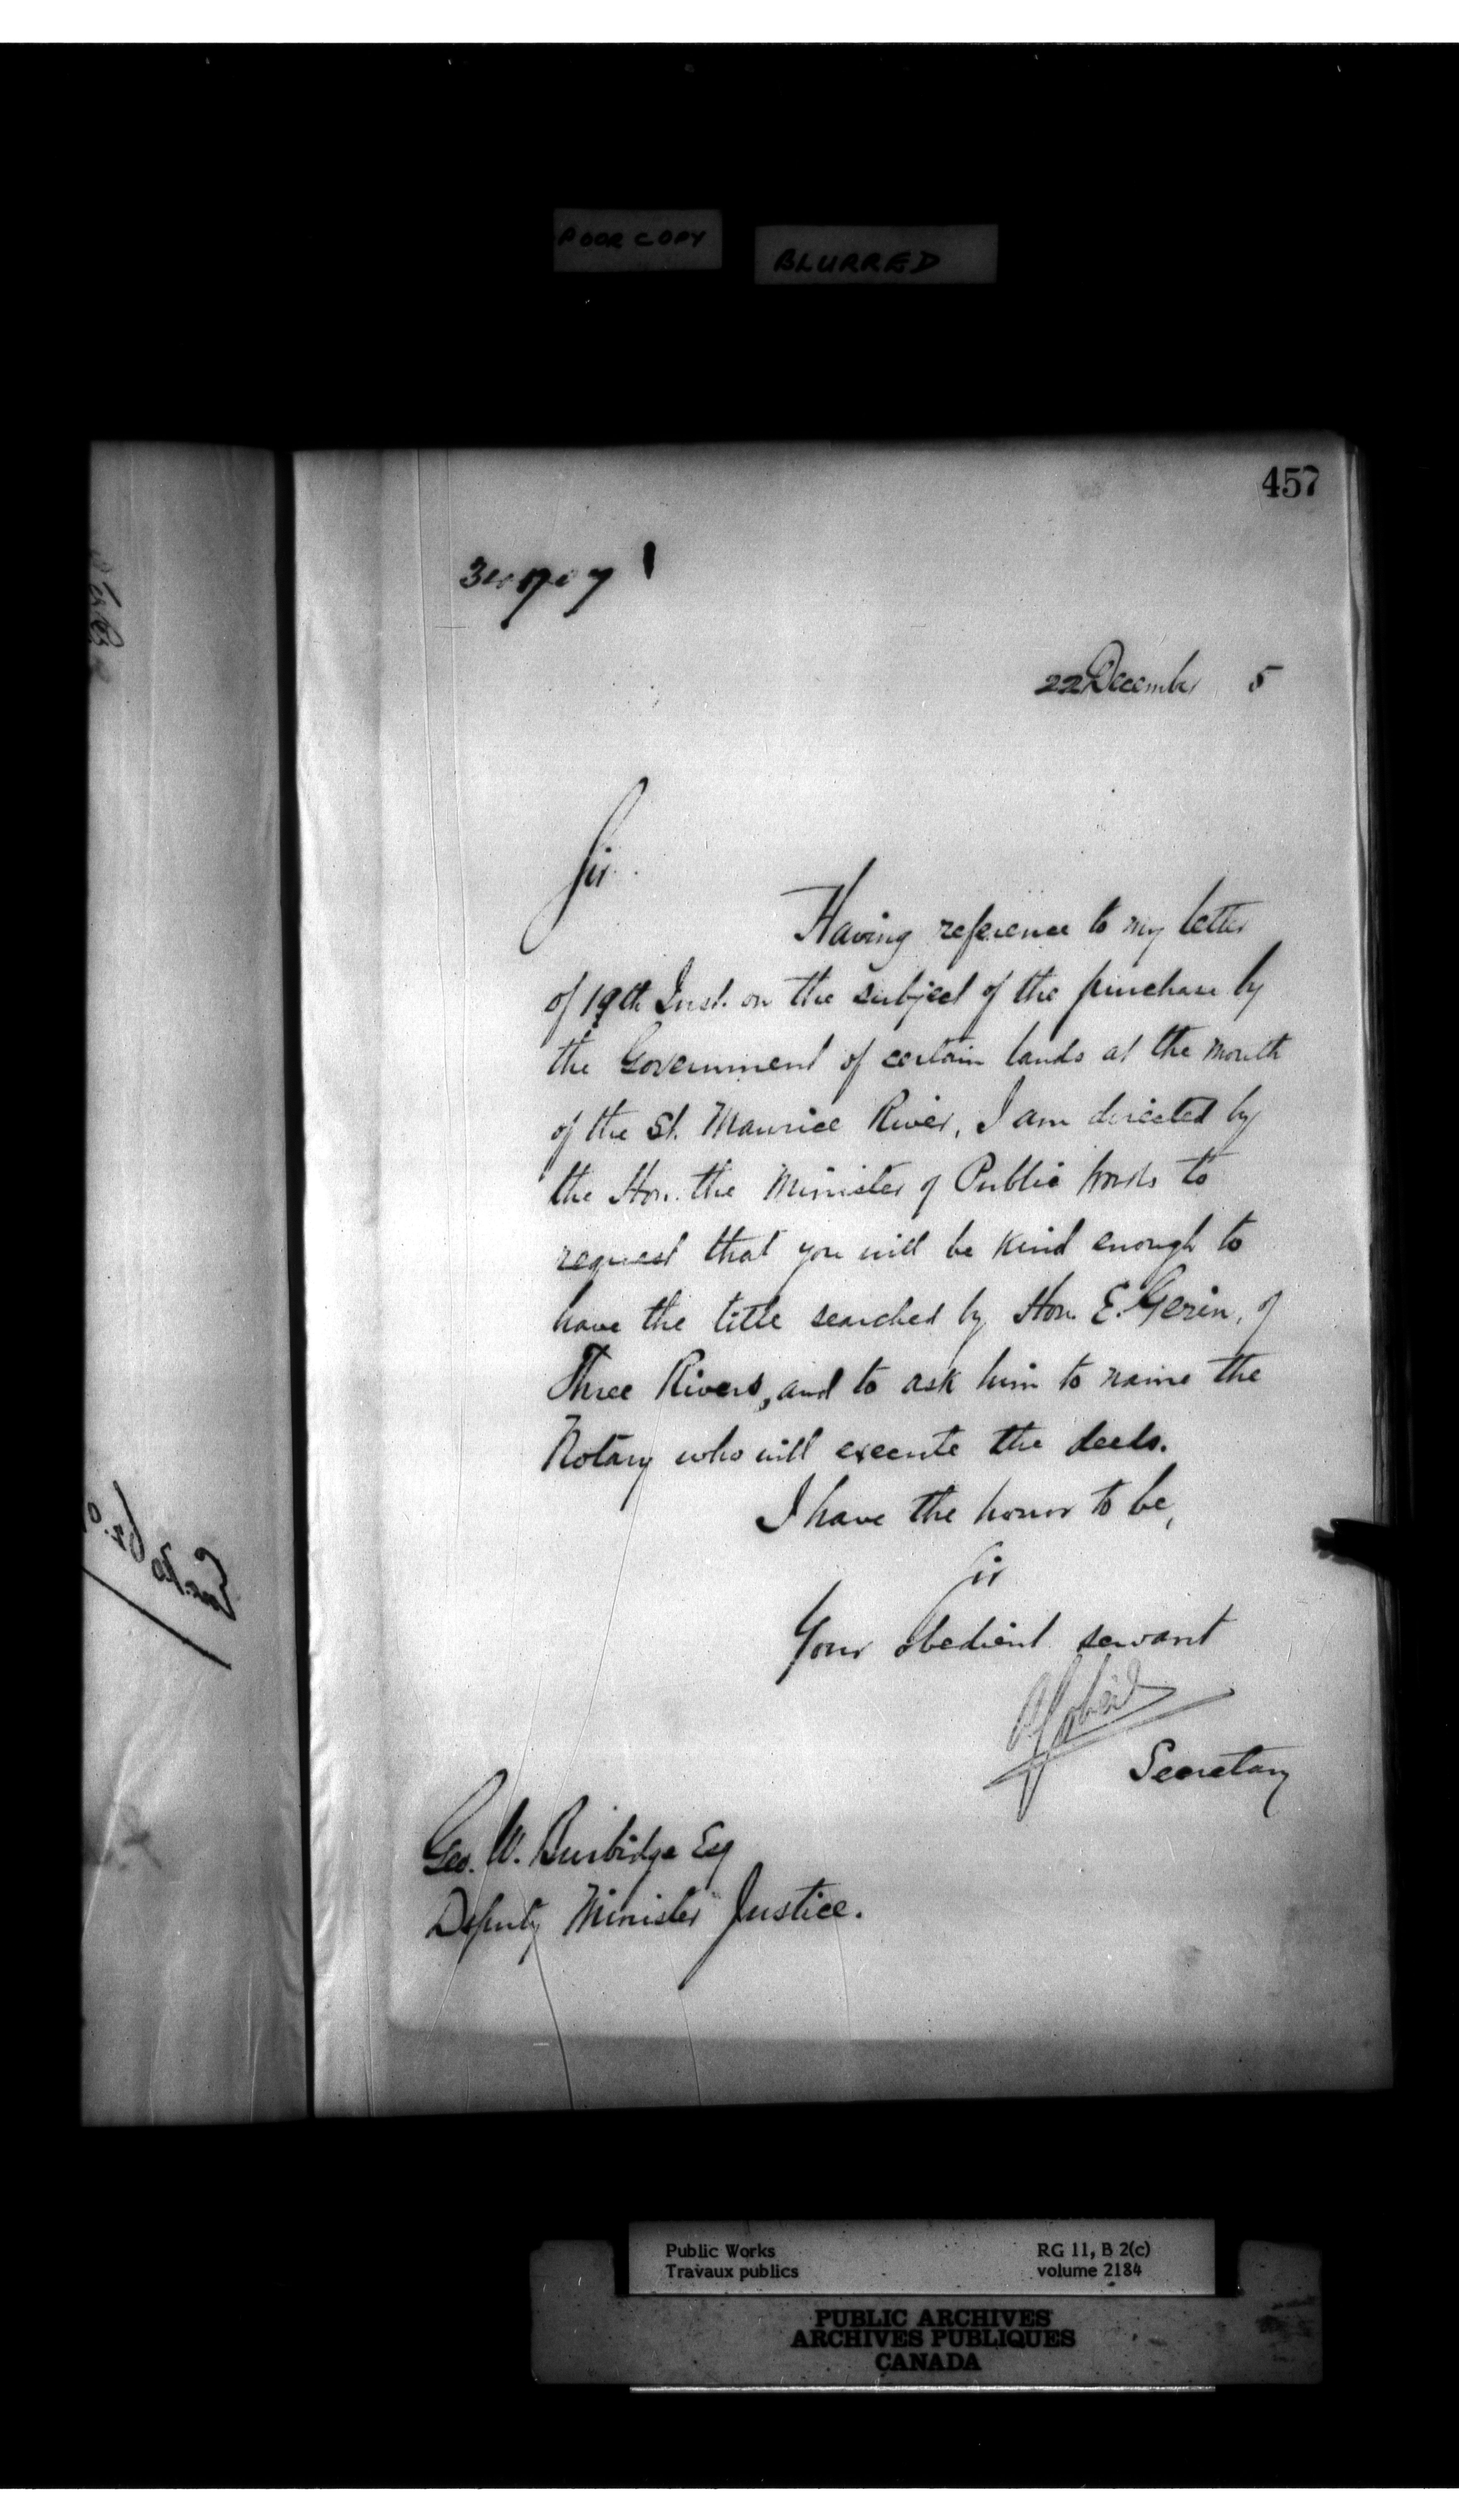 POOR COPY
BLURRED
457
22 December 5
Sir.
Having reference to my letter
of 19th Inst. on the subject of the purchase by
the Government of certain lands at the mouth
of the St. Maurice River, I am directed by
the Hon. the Minister of Public Works to
request that you will be kind enough to
have the title searched by Hon. E. Gerin, of
Three Rivers, and to ask him to name the
Notary who will execute the deeds.
I have the honor to be,
Sir
Your obedient servant
Secretary
Geo. W. Burbidge Esq
Deputy Minister Justice.
Public Works
Travaux publics
RG 11, B 2(c)
volume 2184
PUBLIC ARCHIVES
ARCHIVES PUBLIQUES
CANADA